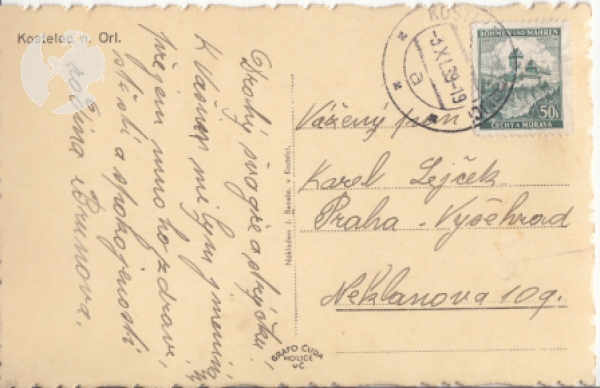 Kostelec n. Orl.
Drahý švagře a strýčku!
K Vašim milým jmeninám
přejem mnoho zdraví,
štěstí a spokojenosti
rodina Brunova.
Nákladem J. Beseda, v Kostelci.
GRAFO ČUDA
HOLICE
v Č.
KOSTELEC
-3.XI.39-19
a
BÖHMEN UND MÄHREN
50h
ČECHY A MORAVA
Vážený pan
Karel Lejček
Praha - Vyšehrad
Neklanova 109.